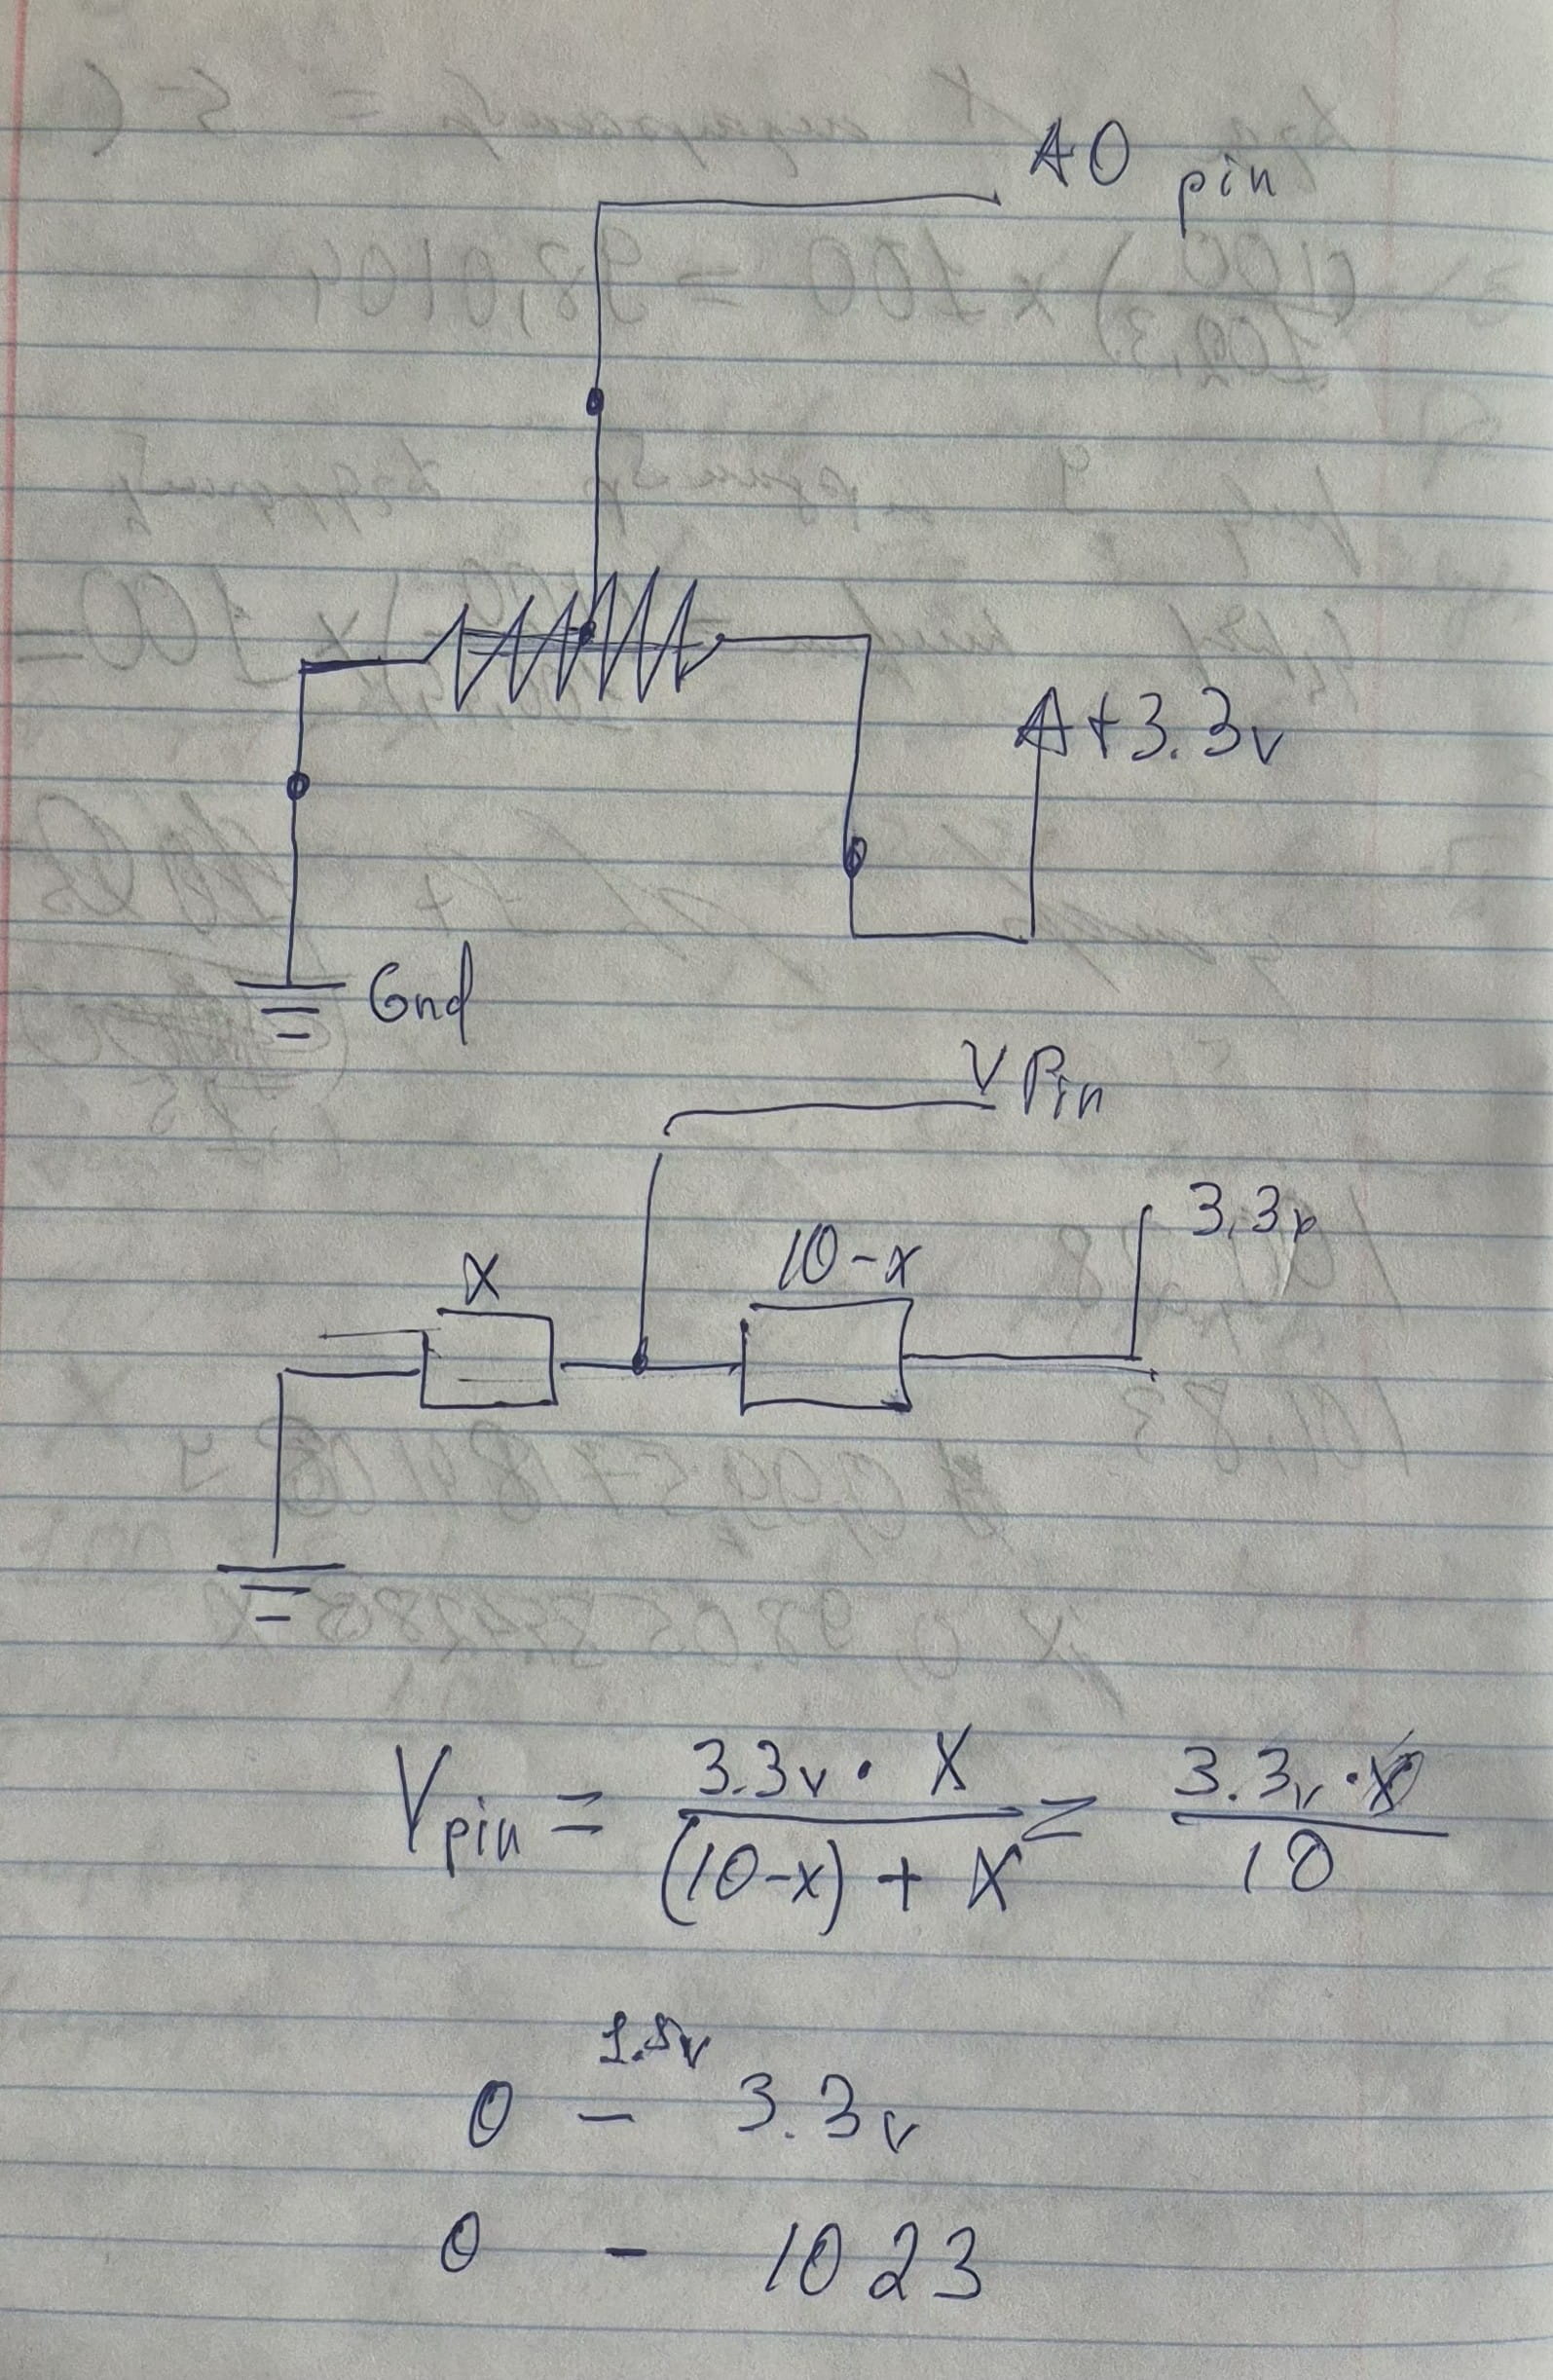 A0 pin
A+3.3v
Gnd
V Pin
3.3v
X
10-x
Vpin = 3.3v · X / (10-x) + X = 3.3v · X / 10
0 - 3.3v
0 - 1023